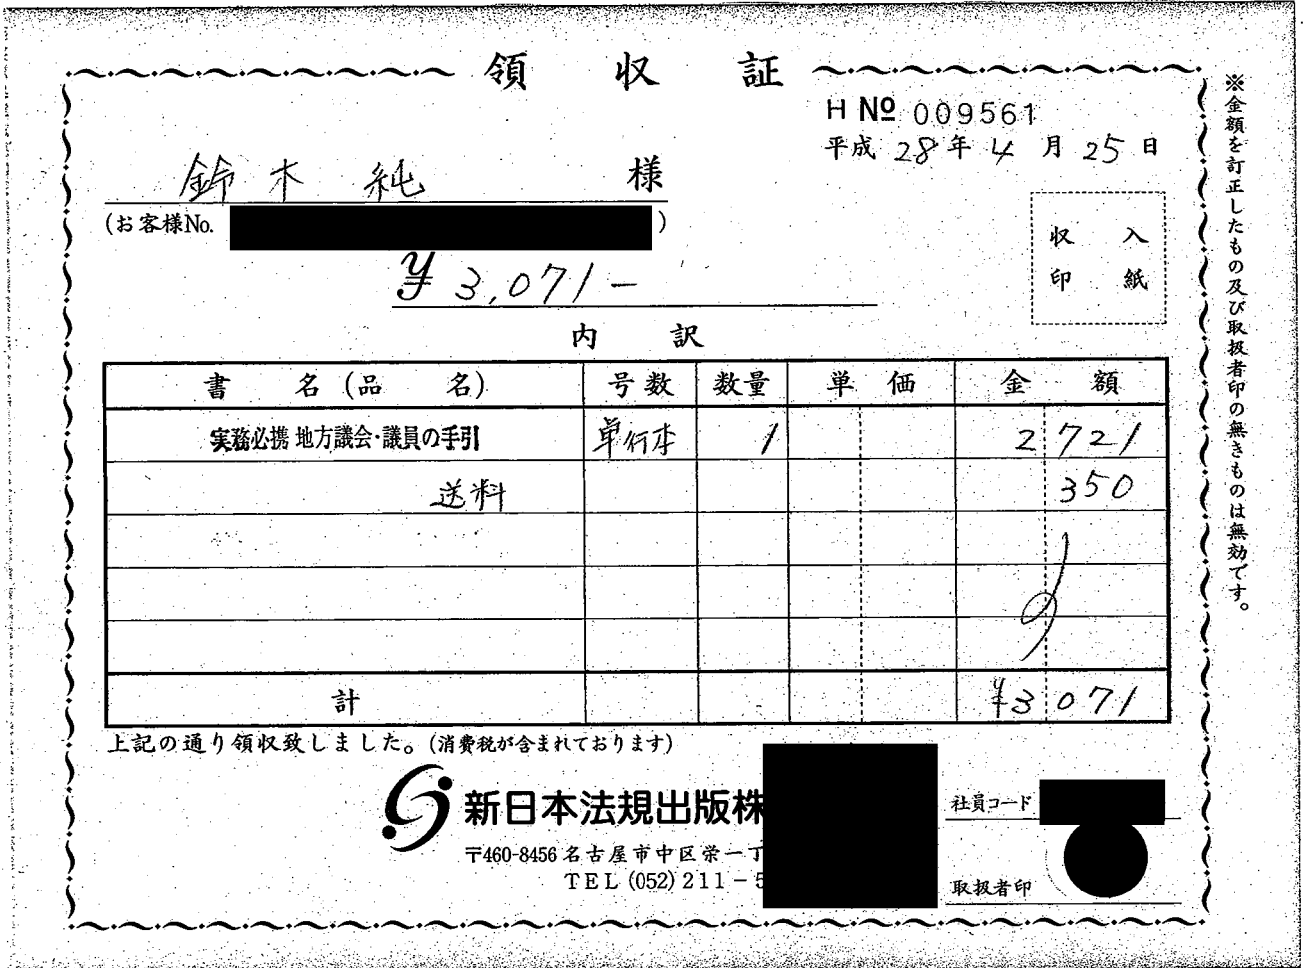 領収証
H No 009561
平成 28 年 4 月 25 日
鈴木 純 様
(お客様No. )
¥ 3,071-
収入
印紙
内訳
書名(品名) 号数 数量 単価 金額
実務必携 地方議会・議員の手引 単行本 1 2 721
送料 350
計 ¥3 071
上記の通り領収致しました。(消費税が含まれております)
新日本法規出版株
〒460-8456 名古屋市中区栄一丁
TEL (052) 211-5
社員コード
取扱者印
※金額を訂正したもの及び取扱者印の無きものは無効です。